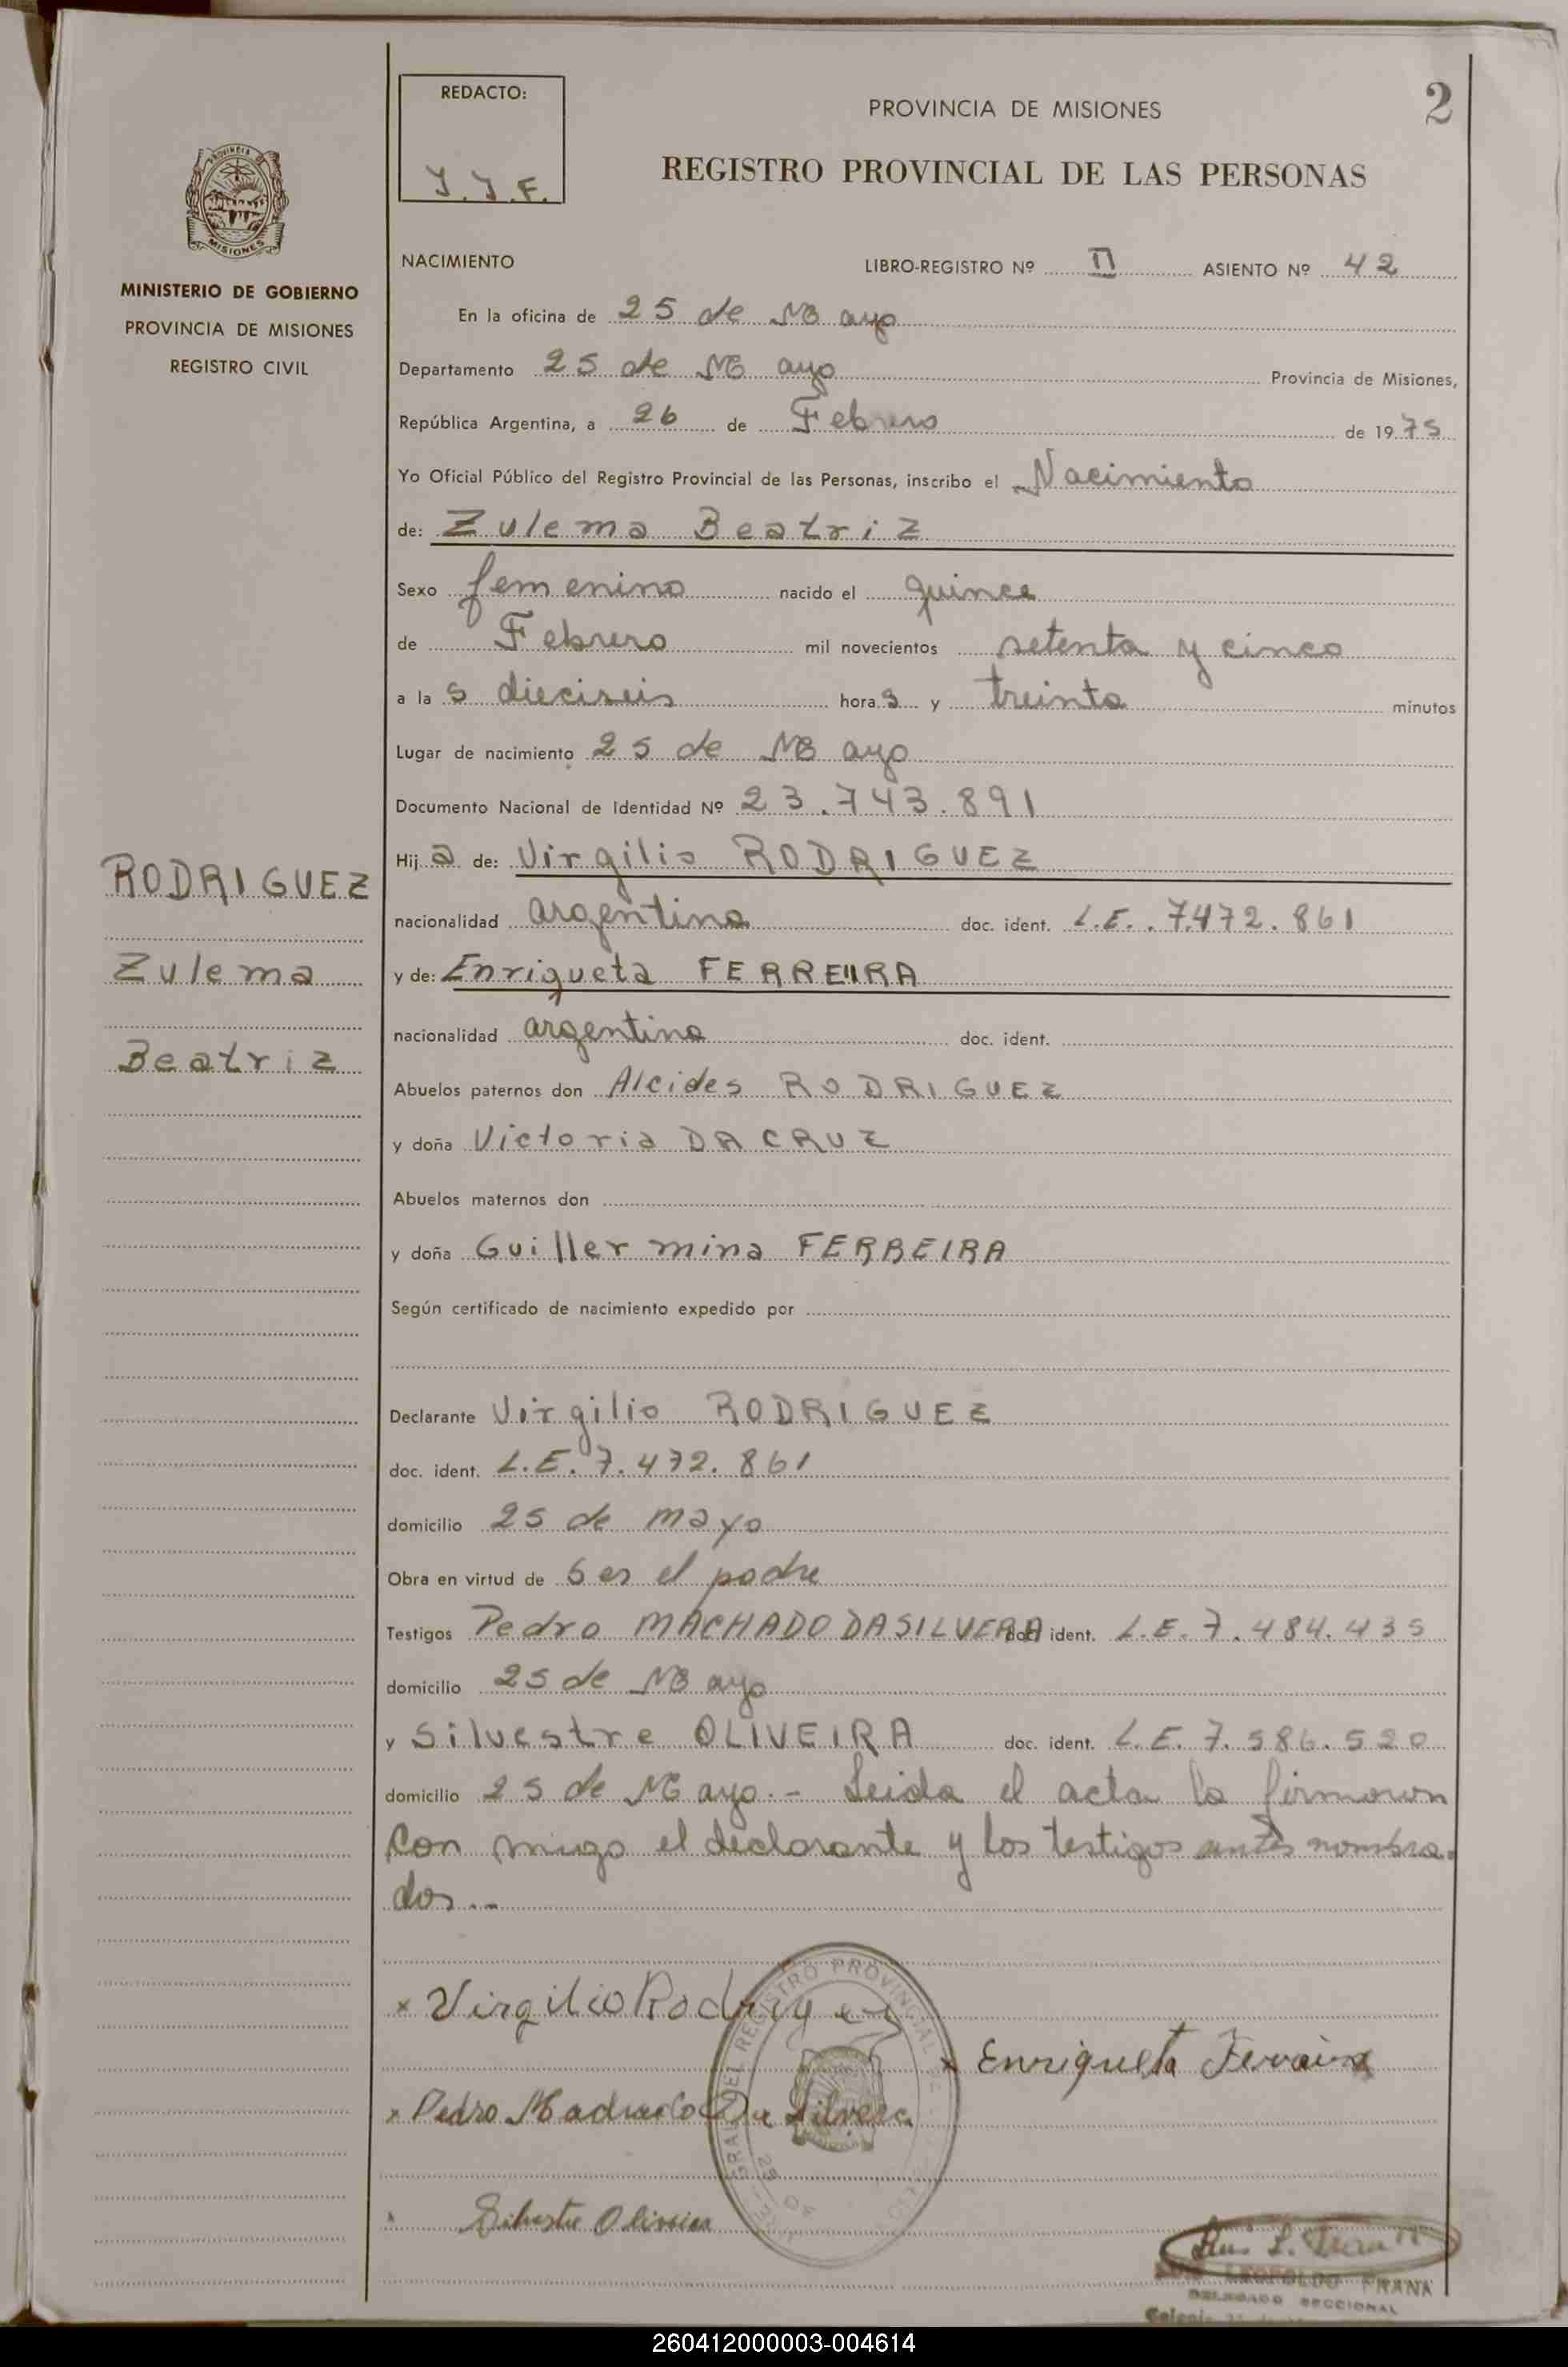 2
REDACTO:
J. J. F.
PROVINCIA DE MISIONES
REGISTRO PROVINCIAL DE LAS PERSONAS
PROVINCIA
MISIONES
MINISTERIO DE GOBIERNO
PROVINCIA DE MISIONES
REGISTRO CIVIL
NACIMIENTO LIBRO-REGISTRO Nº II ASIENTO Nº 42
En la oficina de 25 de Mayo
Departamento 25 de Mayo Provincia de Misiones,
República Argentina, a 26 de Febrero de 1975
Yo Oficial Público del Registro Provincial de las Personas, inscribo el Nacimiento
de: Zulema Beatriz
Sexo femenino nacido el quince
de Febrero mil novecientos setenta y cinco
a las dieciseis horas y treinta minutos
Lugar de nacimiento 25 de Mayo
Documento Nacional de Identidad Nº 23.743.891
Hija de: Virgilio RODRIGUEZ
nacionalidad argentina doc. ident. L.E. 7.472.861
y de: Enriqueta FERREIRA
nacionalidad argentina doc. ident.
Abuelos paternos don Alcides RODRIGUEZ
y doña Victoria DA CRUZ
Abuelos maternos don
y doña Guillermina FERREIRA
Según certificado de nacimiento expedido por
Declarante Virgilio RODRIGUEZ
doc. ident. L.E. 7.472.861
domicilio 25 de mayo
Obra en virtud de ser el padre
Testigos Pedro MACHADO DA SILVERA doc. ident. L.E. 7.484.435
domicilio 25 de Mayo
y Silvestre OLIVEIRA doc. ident. L.E. 7.586.520
domicilio 25 de Mayo.- Leida el acta la firmaron
con migo el declarante y los testigos antes nombra-
dos.-
RODRIGUEZ
Zulema
Beatriz
x Virgilio Rodriguez
x Enriqueta Ferreira
x Pedro Machado Da Silvera
Silvestre Oliveira
DEL REGISTRO PROVINCIAL
25 DE
LEOPOLDO FRANK
DELEGADO SECCIONAL
Colonia
260412000003-004614